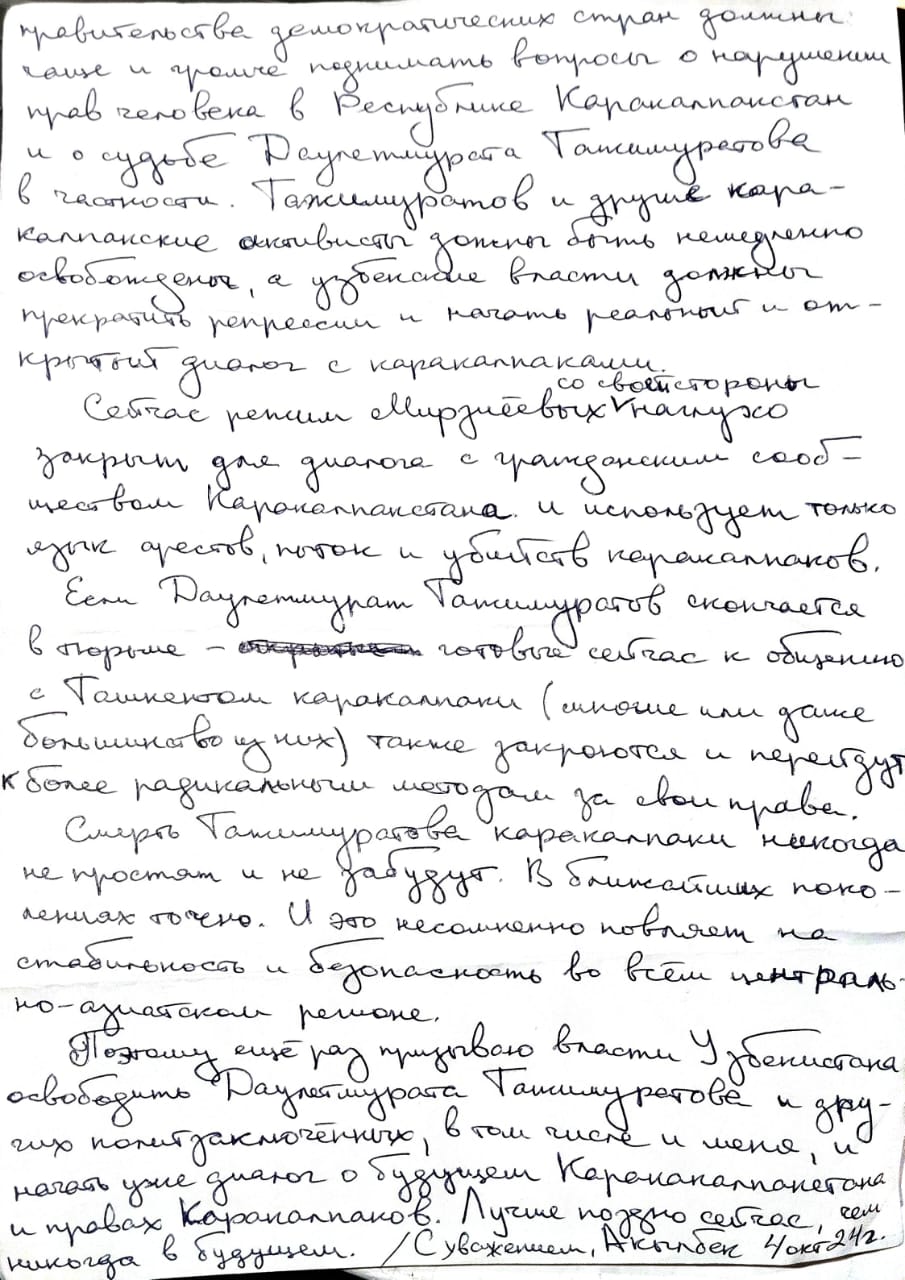 правительства демократических стран должны
чаще и громче поднимать вопросы о нарушении
прав человека в Республике Каракалпакстан
и о судьбе Даулетмурата Тажимуратова
в частности. Тажимуратов и другие кара-
калпакские активисты должны быть немедленно
освобождены, а узбекские власти должны
прекратить репрессии и начать реальный и от-
крытый диалог с каракалпаками.
со своей стороны
Сейчас режим Мирзиёевых наглухо
закрыт для диалога с гражданским сооб-
ществом Каракалпакстана. и использует только
язык арестов, пыток и убийств каракалпаков.
Если Даулетмурат Тажимуратов скончается
в тюрьме – готовые сейчас к общению
с Ташкентом каракалпаки (многие или даже
большинство из них) также закроются и перейдут
к более радикальным методам за свои права.
Смерть Тажимуратова каракалпаки никогда
не простят и не забудут. В ближайших поко-
лениях точно. И это несомненно повлияет на
стабильность и безопасность во всём централь-
но-азиатском регионе.
Поэтому ещё раз призываю власти Узбекистана
освободить Даулетмурата Тажимуратова и дру-
гих политзаключённых, в том числе и меня, и
начать уже диалог о будущем Каракалпакстана
и правах Каракалпаков. Лучше поздно сейчас, чем
никогда в будущем. / С уважением, Акылбек 4 окт 24г.